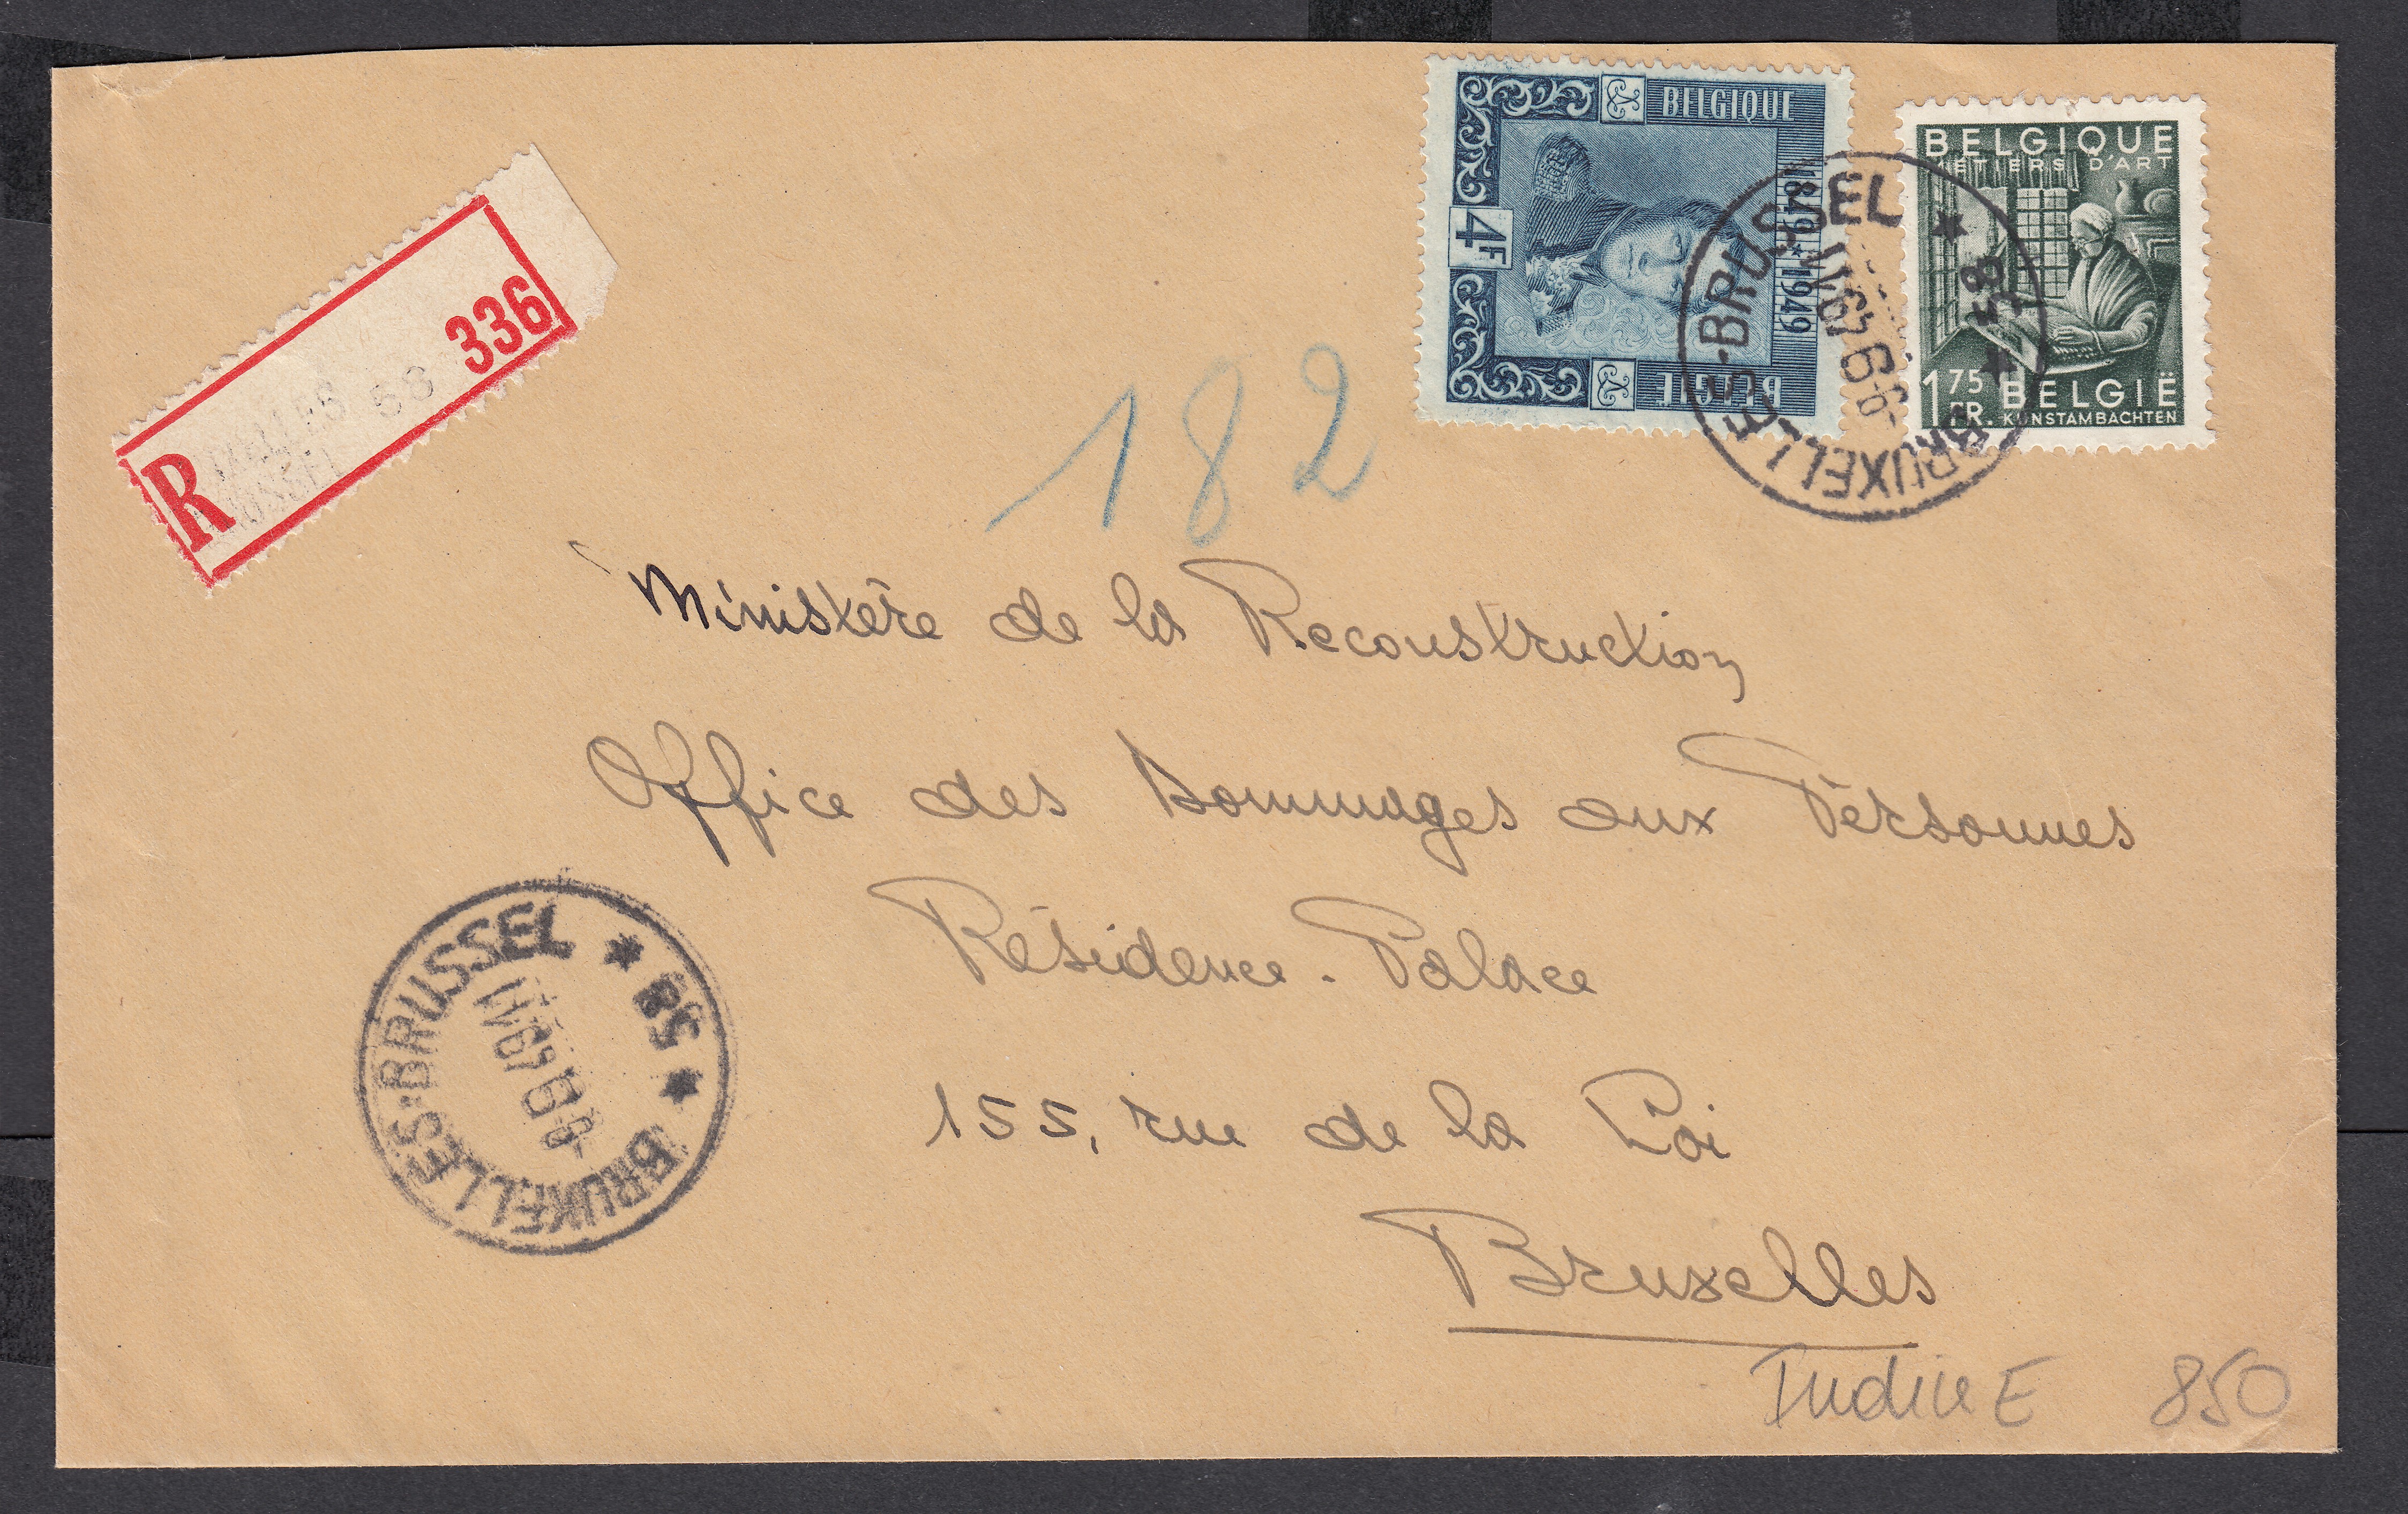 BELGIQUE
1849 * 1949
4F
BELGIE
BELGIQUE
METIERS D'ART
1 75 FR. BELGIË
KUNSTAMBACHTEN
BRUXELLES-BRUSSEL
58
R
58
336
182
Ministère de la Reconstruction
Office des Dommages aux Personnes
Résidence - Palace
155, rue de la Loi
Bruxelles
BRUXELLES-BRUSSEL
Indice E 850